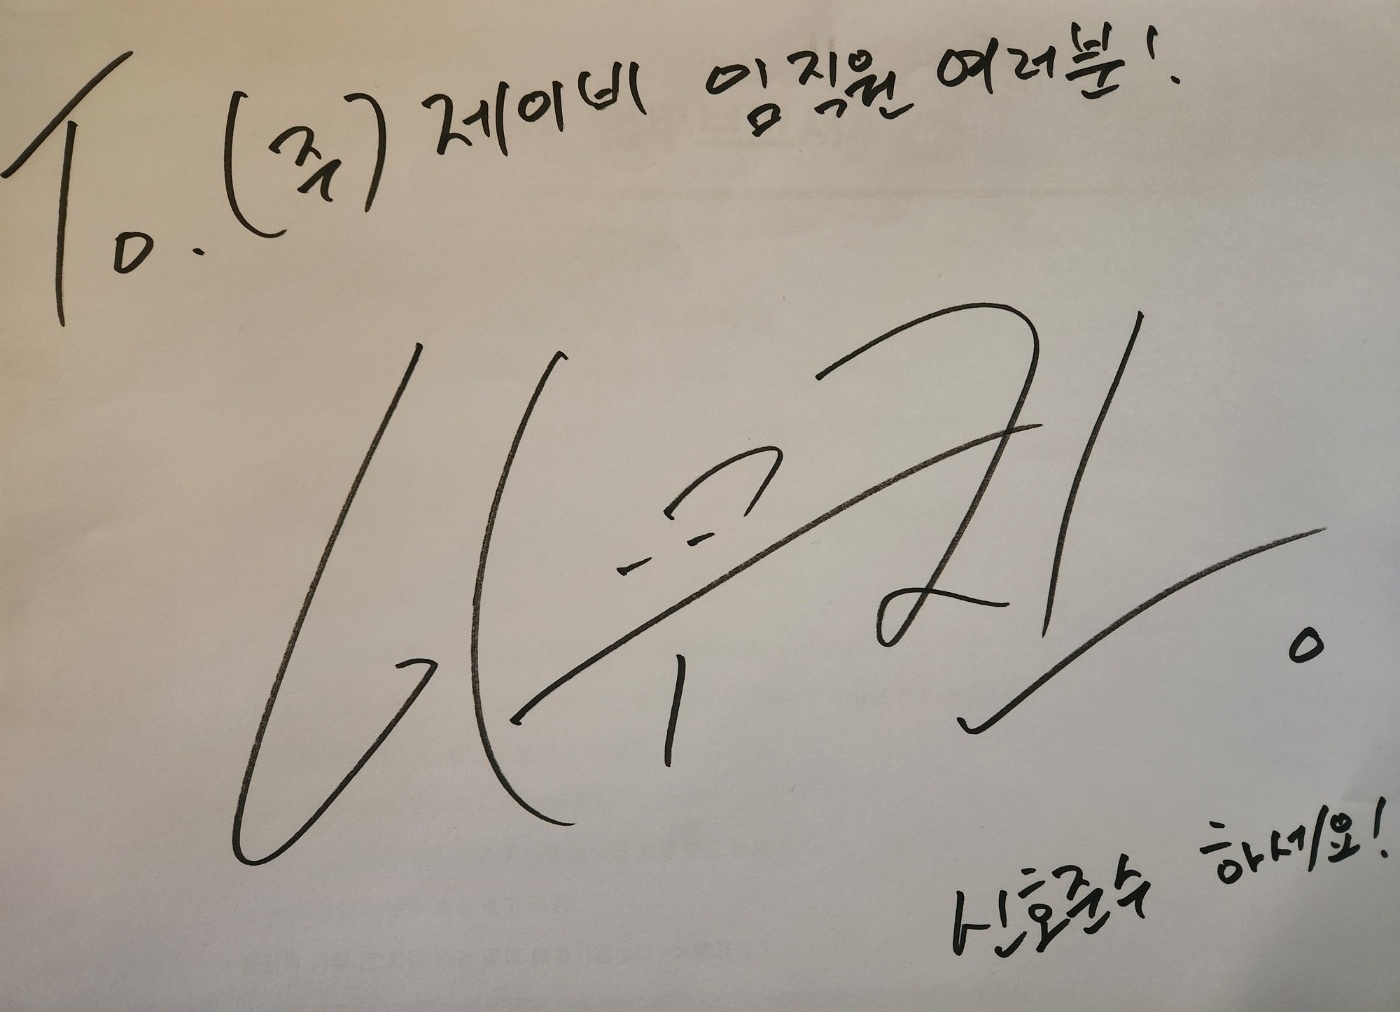 To. (주) 제이비 임직원 여러분!
신호준수 하세요!